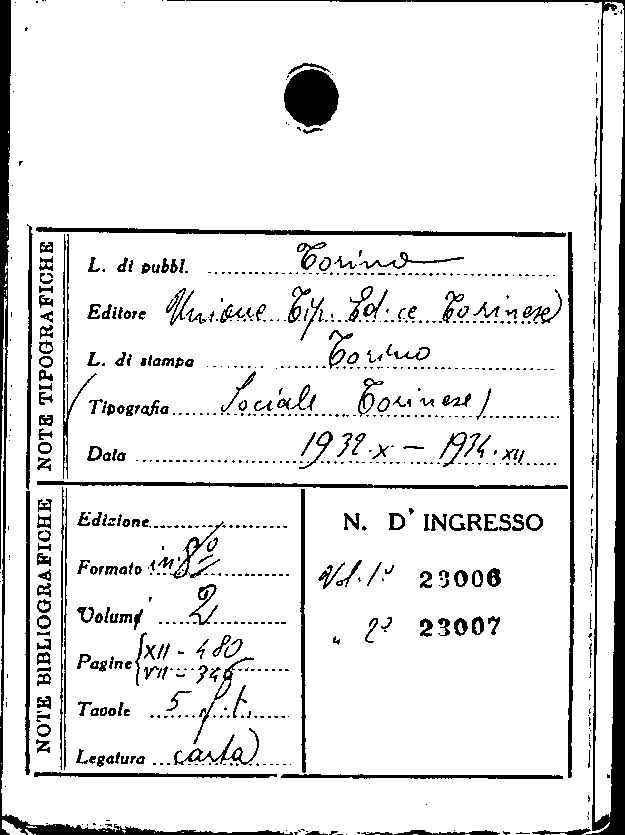 NOTE TIPOGRAFICHE
L. di pubbl. Torino
Editore Unione Tip. Ed.ce Torinese
L. di stampa Torino
Tipografia Sociale Torinese
Data 1932.X — 1934.XII
NOTE BIBLIOGRAFICHE
Edizione
Formato in 8º
Volumi 2
Pagine XII - 480
VII - 346
Tavole 5 f.t.
Legatura carta
N. D'INGRESSO
Vol. 1º 23006
" 2º 23007